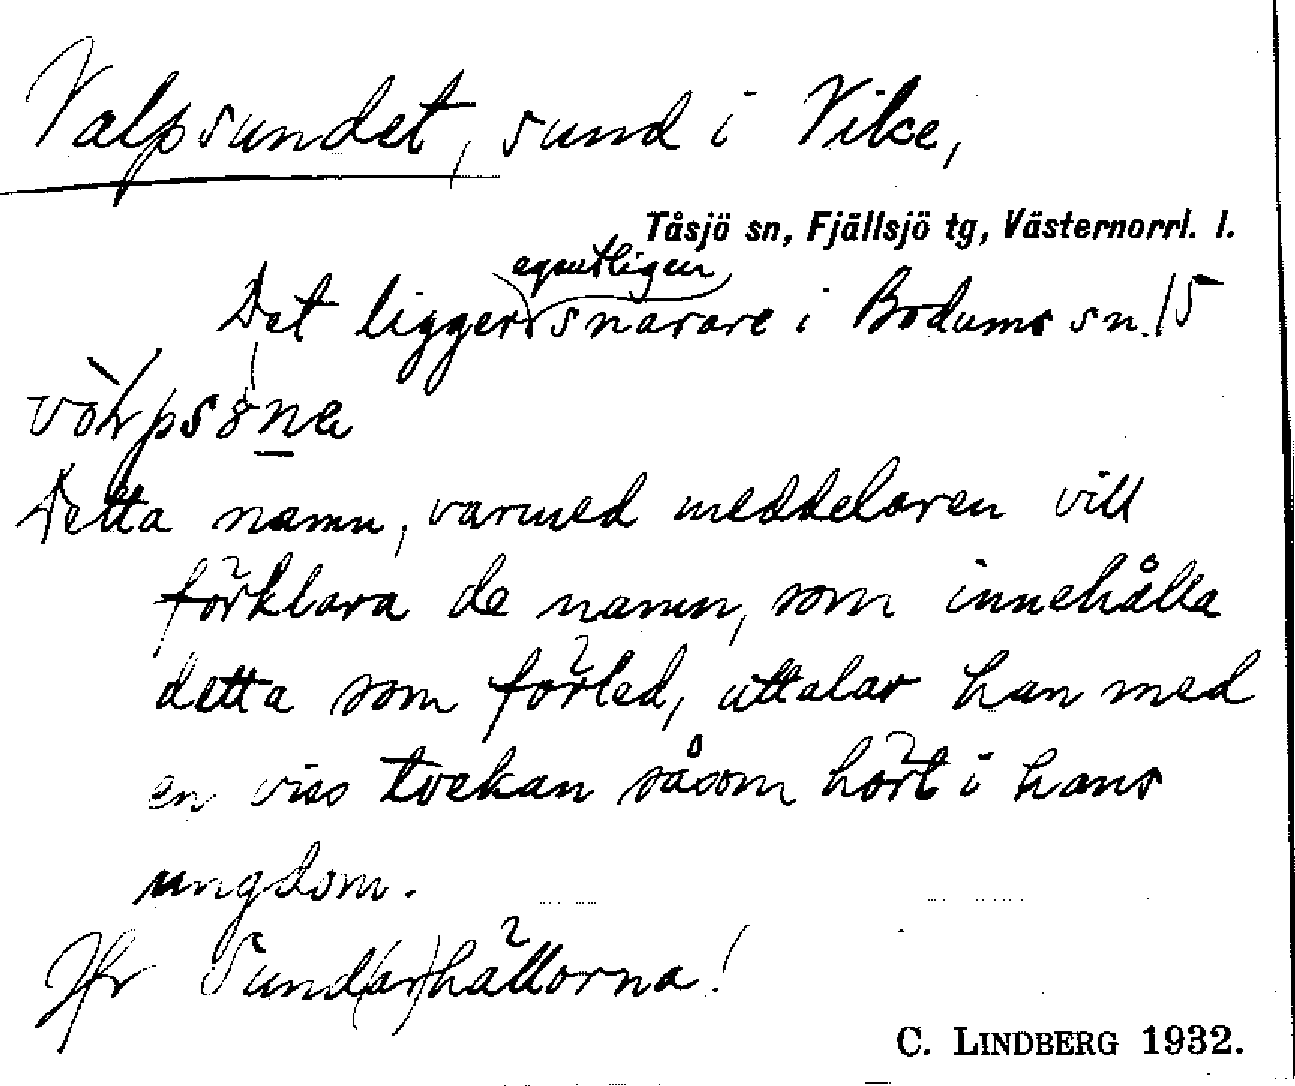 Valpsundet, sund i Vike,
Tåsjö sn, Fjällsjö tg, Västernorrl. l.
egentligen
Det ligger snarare i Bodums sn. 15
Detta namn, varmed meddelaren vill
förklara de namn, som innehålla
detta som förled, uttalar han med
en viss tvekan såsom hört i hans
ungdom.
Jfr Sund(ar)hällorna!
C. LINDBERG 1932.